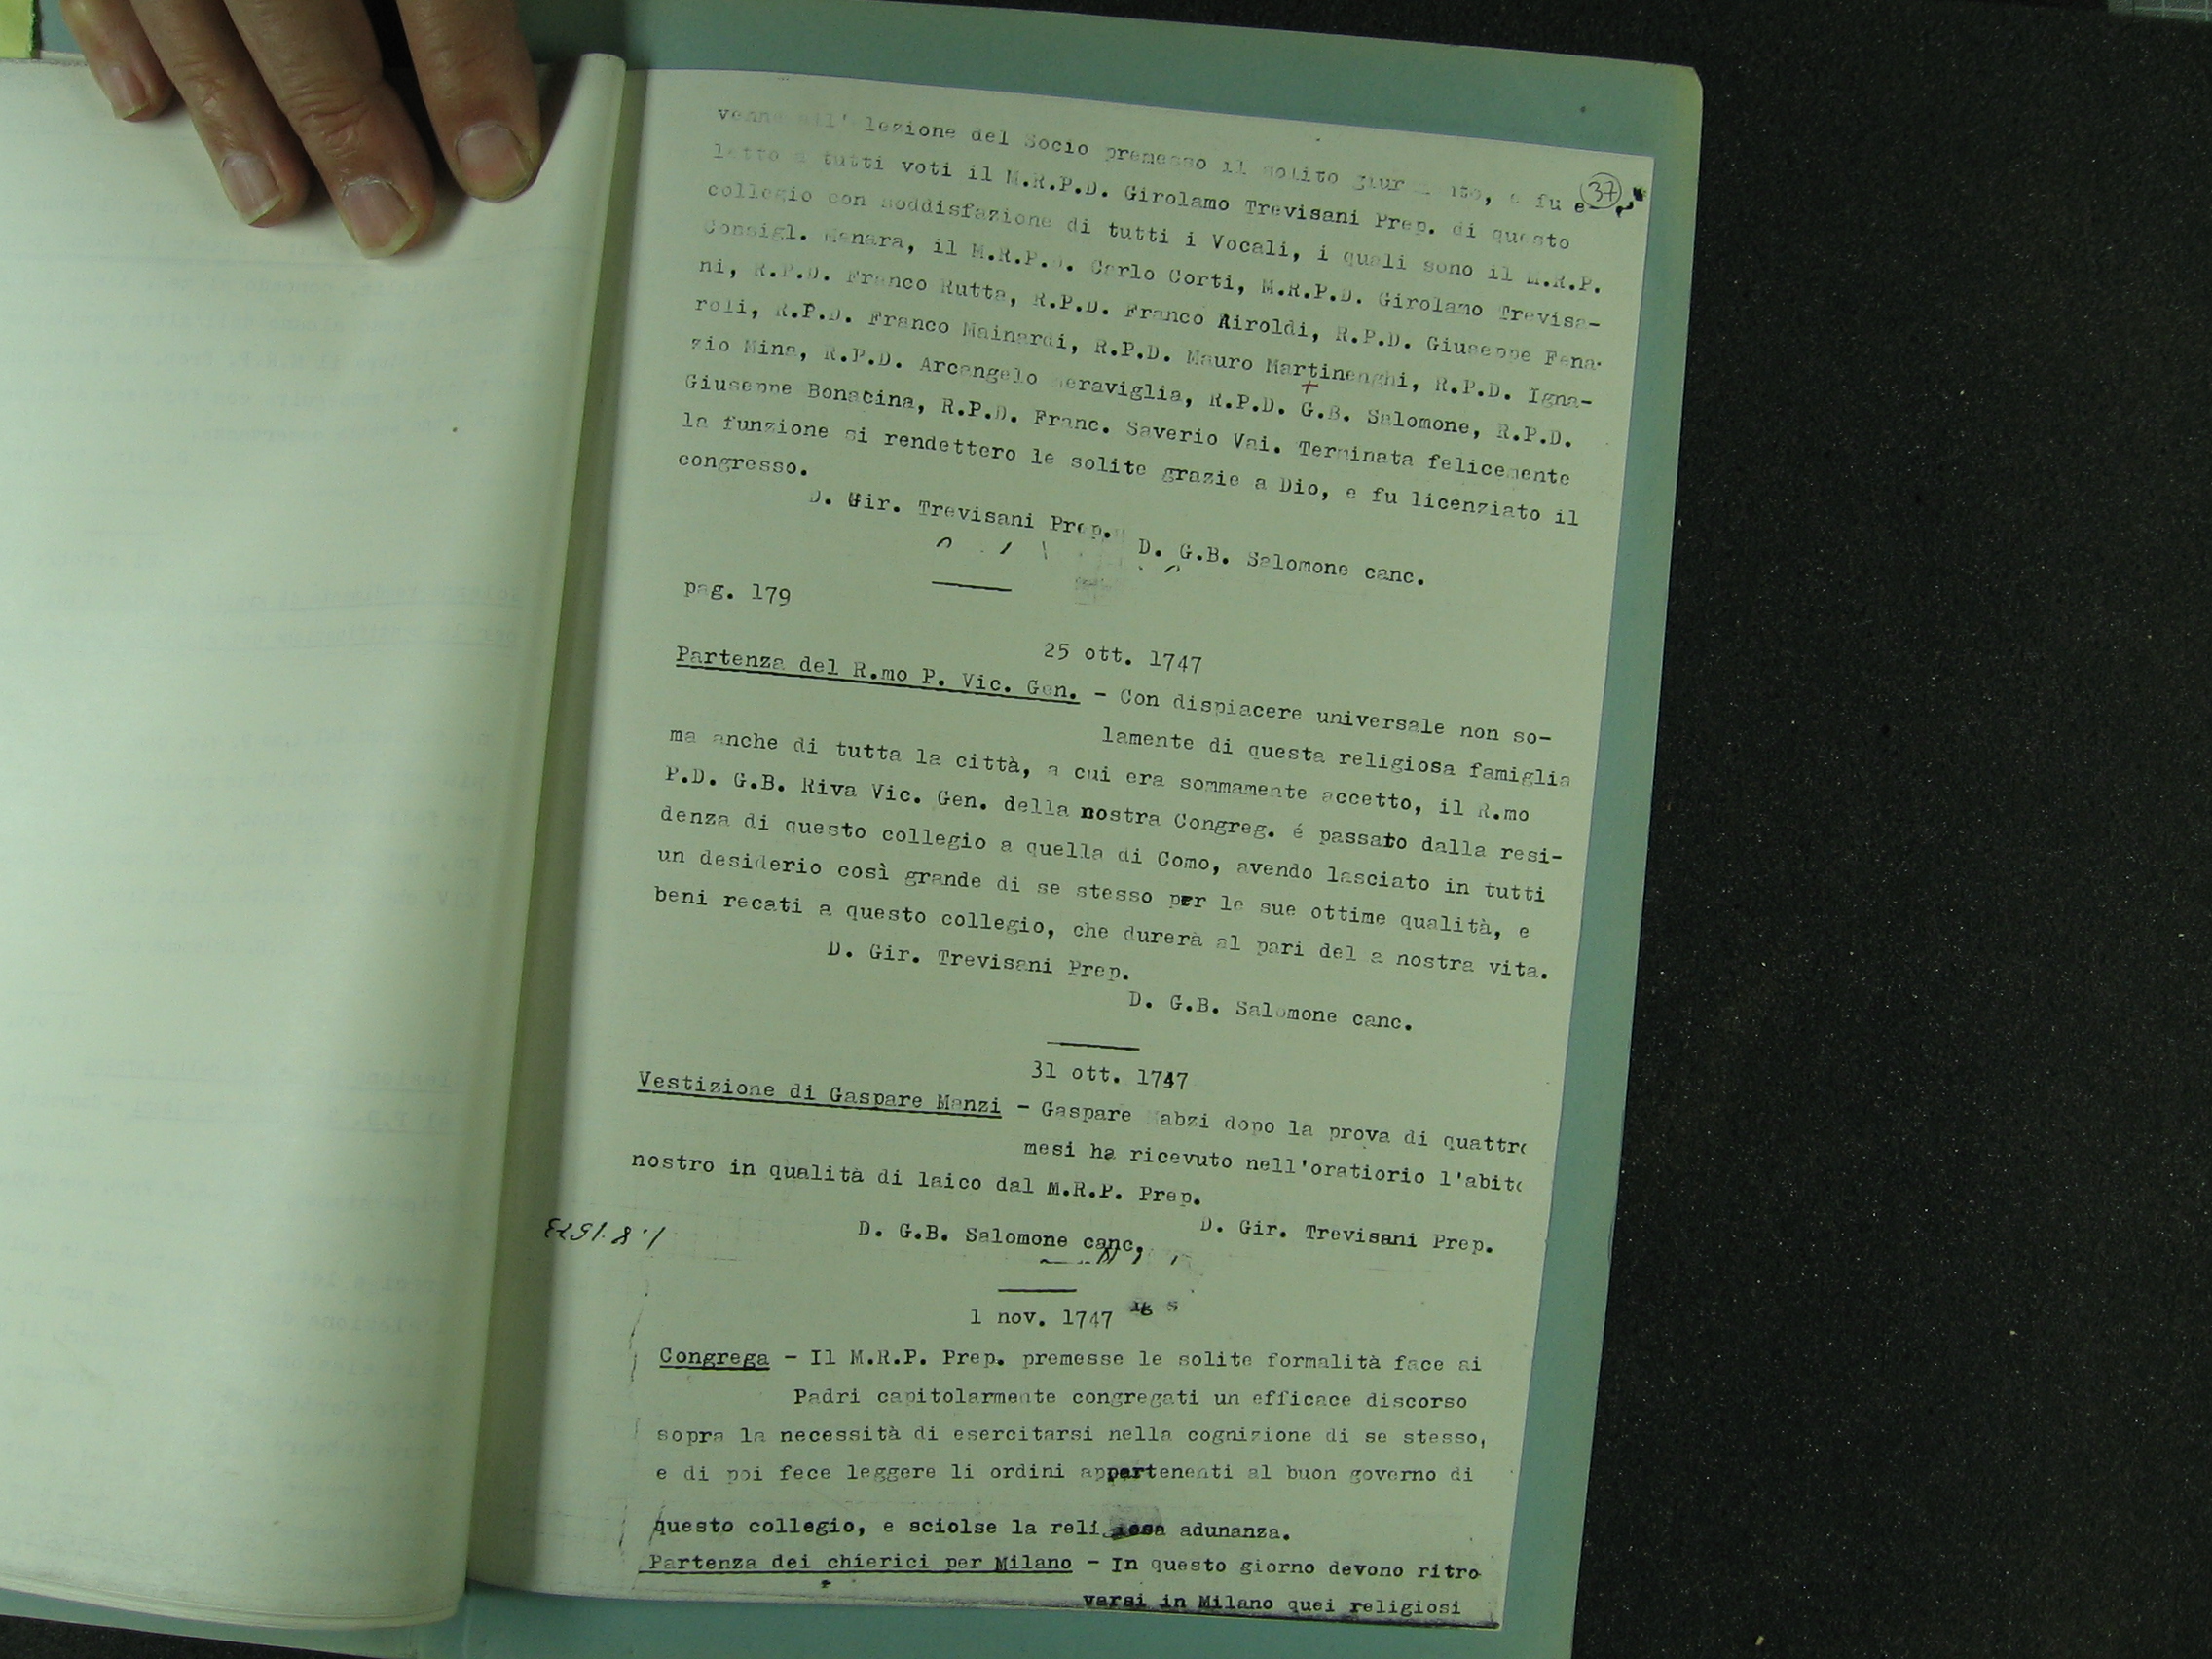 venne all'elezione del Socio premesso il solito giuramento, e fu e-
letto a tutti voti il M.R.P.D. Girolamo Trevisani Prep. di questo
collegio con soddisfazione di tutti i Vocali, i quali sono il M.R.P.
Consigl. Manara, il M.R.P.D. Carlo Corti, M.R.P.D. Girolamo Trevisa-
ni, R.P.D. Franco Rutta, R.P.D. Franco Airoldi, R.P.D. Giuseppe Fena-
roli, R.P.D. Franco Mainardi, R.P.D. Mauro Martinenghi, R.P.D. Igna-
zio Mina, R.P.D. Arcangelo Meraviglia, R.P.D. G.B. Salomone, R.P.D.
Giuseppe Bonacina, R.P.D. Franc. Saverio Vai. Terminata felicemente
la funzione si rendettero le solite grazie a Dio, e fu licenziato il
congresso.
D. Gir. Trevisani Prep.
D. G.B. Salomone canc.
37
pag. 179
25 ott. 1747
Partenza del R.mo P. Vic. Gen. - Con dispiacere universale non so-
lamente di questa religiosa famiglia
ma anche di tutta la città, a cui era sommamente accetto, il R.mo
P.D. G.B. Riva Vic. Gen. della nostra Congreg. é passato dalla resi-
denza di questo collegio a quella di Como, avendo lasciato in tutti
un desiderio così grande di se stesso per le sue ottime qualità, e
beni recati a questo collegio, che durerà al pari del a nostra vita.
D. Gir. Trevisani Prep.
D. G.B. Salomone canc.
31 ott. 1747
Vestizione di Gaspare Manzi - Gaspare Mabzi dopo la prova di quattro
mesi ha ricevuto nell'oratiorio l'abito
nostro in qualità di laico dal M.R.P. Prep.
D. Gir. Trevisani Prep.
D. G.B. Salomone canc.
1 nov. 1747
Congrega - Il M.R.P. Prep. premesse le solite formalità face ai
Padri capitolarmente congregati un efficace discorso
sopra la necessità di esercitarsi nella cognizione di se stesso,
e di poi fece leggere li ordini appartenenti al buon governo di
questo collegio, e sciolse la religiosa adunanza.
Partenza dei chierici per Milano - In questo giorno devono ritro
varsi in Milano quei religiosi